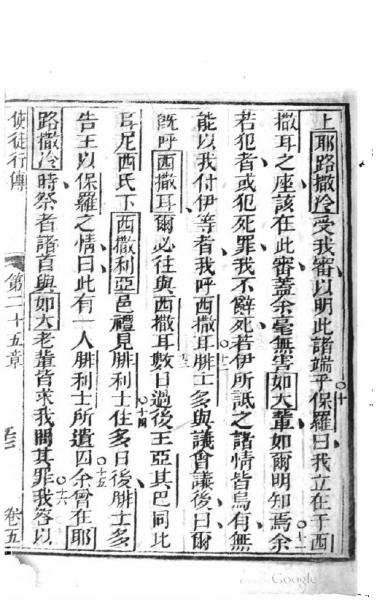 上耶路撒冷受我審以明此諸端乎○十保羅曰我立在于西
撒耳之座該在此審蓋余毫無害如大輩如爾明知焉○十一余
若犯者或犯死罪我不辭死若伊所詆之諸情皆烏有無
能以我付伊等者我呼西撒耳○十二腓士多與議會議後曰爾
旣呼西撒耳爾必往與西撒耳○十三數日過後王亞其巴同比
耳尼西氏下西撒利亞邑禮見腓利士○十四住多日後腓士多
告王以保羅之情曰此有一人腓利士所遺囚○十五余曾在耶
路撒冷時祭者諸首與如大老輩皆求我罰其罪○十六我答以
使徒行傳 第二十五章 卷五
Google